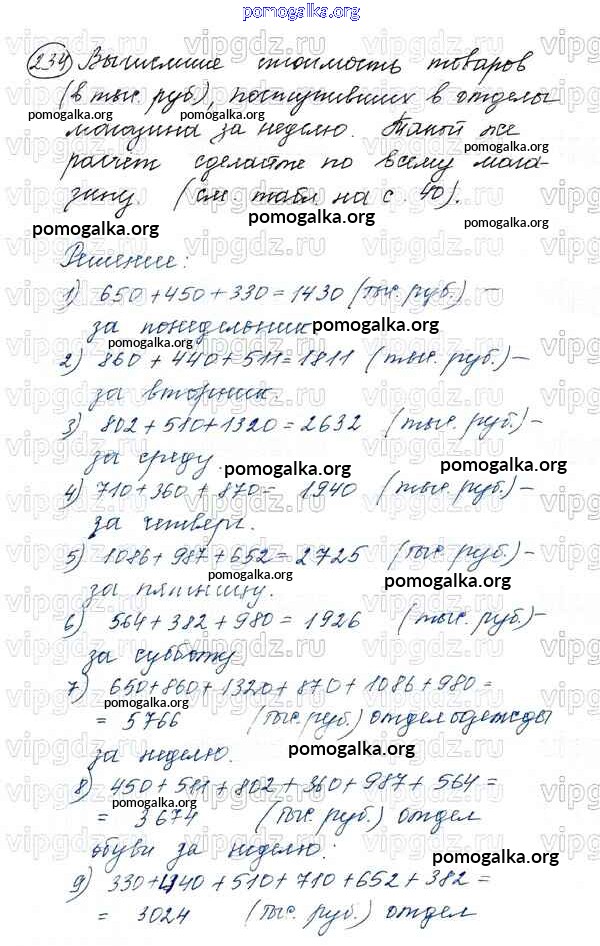 pomogalka.org
234) Вычислите стоимость товаров
(в тыс. руб.), поступивших в отделы
магазина за неделю. Такой же
расчет сделайте по всему мага-
зину. (см. табл на с. 40).
pomogalka.org
Решение:
1) 650+450+330=1430 (тыс. руб.) -
за понедельник
2) 860+440+511=1811 (тыс. руб.) -
за вторник.
3) 802+510+1320=2632 (тыс. руб.) -
за среду.
4) 710+360+870= 1940 (тыс. руб.) -
за четверг.
5) 1086+987+652=2725 (тыс. руб.) -
за пятницу.
6) 564+382+980=1926 (тыс. руб.) -
за субботу
7) 650+860+1320+870+1086+980=
= 5766 (тыс. руб.) отдел одежды
за неделю.
8) 450+511+802+360+987+564=
= 3674 (тыс. руб.) отдел
обуви за неделю.
9) 330+440+510+710+652+382=
= 3024 (тыс. руб.) отдел